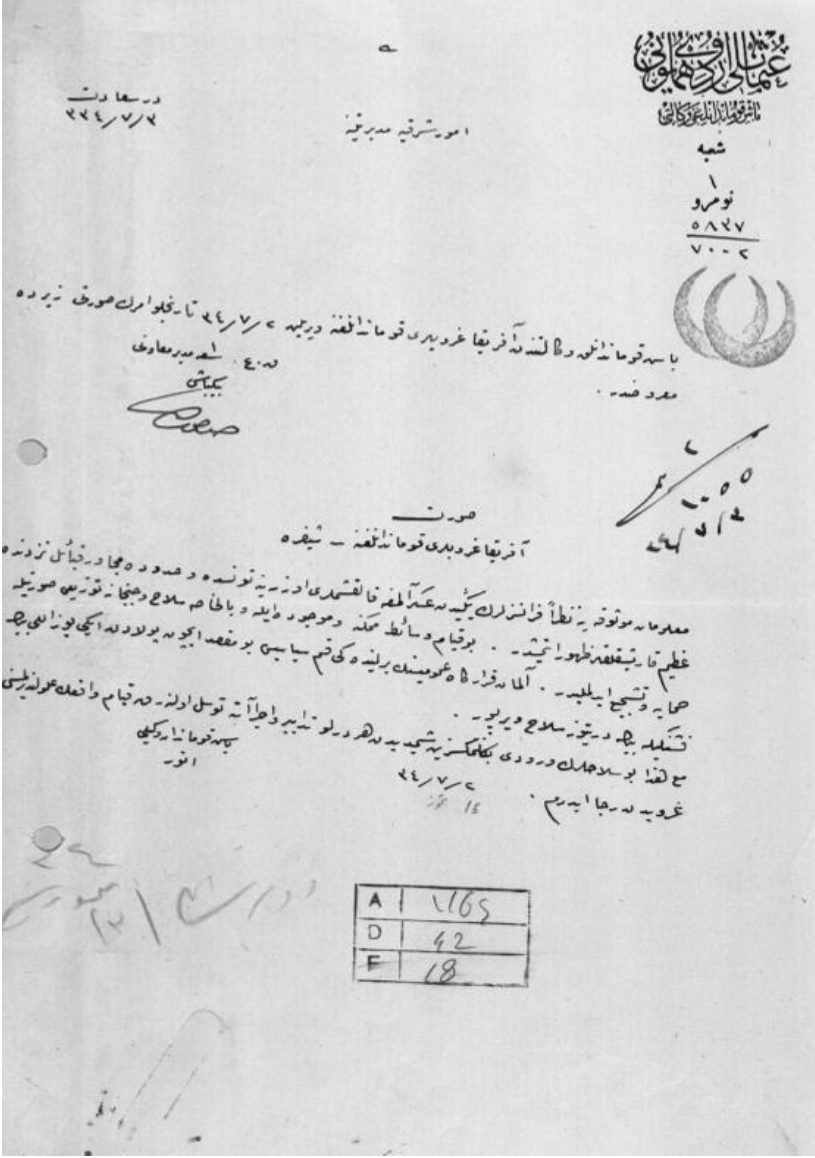 عثمانلی اردوی همایونی
باش قوماندانلغی وكالتی
شعبه
١
نومرو
٥٨٣٧
٧٠٠٢
در سعادت
٣٣٤/٧/٣
امور شرقیه مدیریتنه
باش قوماندانلق وكالتندن آفریقا غروپلری قوماندانلغنه ویریلن ٣٤/٧/٢ تاریخلو امرك صورتی زیرده
معروضدر .
شعبه مدیر معاونی
بیكباشی
١٠٥٥
٣٤/٧/٣
صورت
آفریقا غروپلری قوماندانلغنه - شیفره
معلومات موثوقه یه نظراً فرانسزلرك یكیدن عسكر آلمغه قالقشملری اوزرینه تونسده و حدوده مجاور قبائل نزدنده
عظیم قاریشقلقلر ظهور ایتمشدر . بو قیام وسائط ممكنه و موجوده ایله و بالخاصه سلاح و جبخانه توزیعی صورتیله
حمایه و تشجیع ایدلملیدر . آلمان قرارگاه عمومیسنك برلینده كی قسم سیاسیسی بو مقصد ایچون پولادن ایكی یوز اللی بیك
بیك درتیوز سلاح ویریور .
مع هذا بو سلاحلرك ورودی بكلنمكسزین شیمدیدن هر درلو تدابیر و اجراآته توسل اولنه رق قیام واقعك
غروپدن رجا ایدرم . ٣٤/٧/٢
باش قوماندان وكیلی
انور
A 1169
D 42
F 18